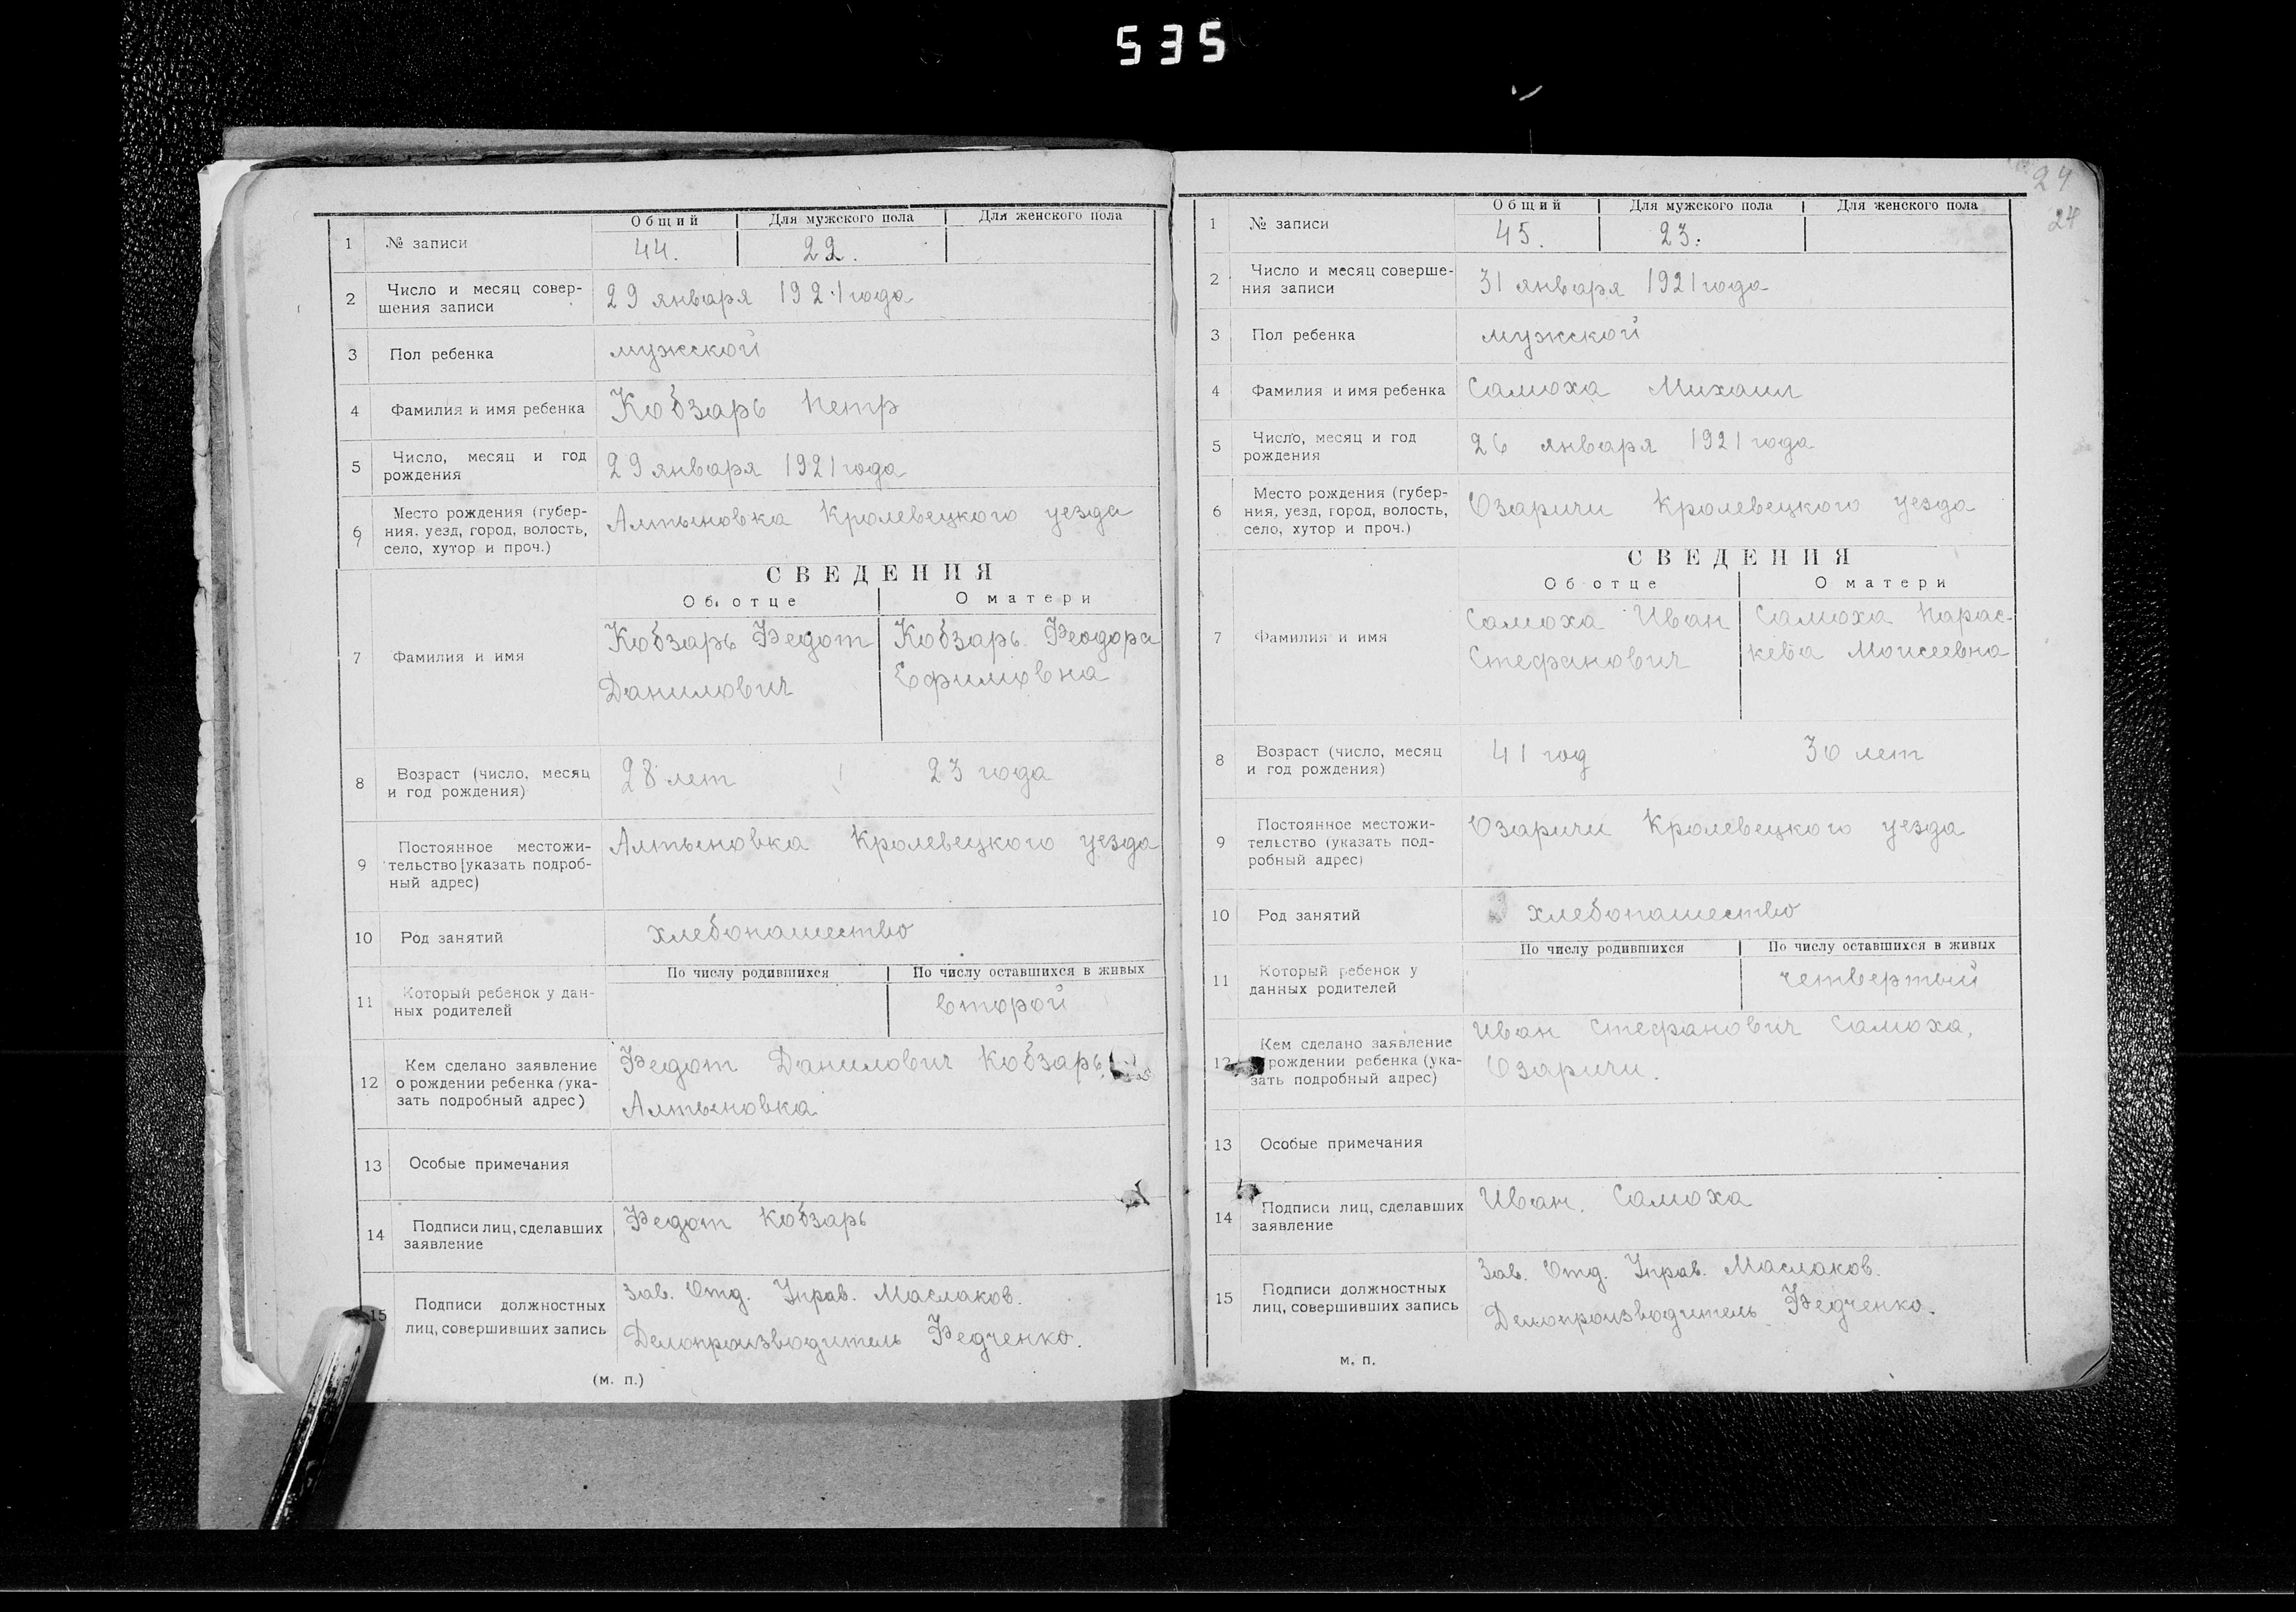 535
Общий Для мужского пола Для женского пола
1 № записи 44. 22.
2 Число и месяц совер-
шения записи
29 января 1921 года
3 Пол ребенка мужской
4 Фамилия и имя ребенка Кобзарь Петр
5 Число, месяц и год
рождения
29 января 1921 года
6 Место рождения (губер-
ния, уезд, город, волость,
село, хутор и проч.)
Алтыновка Кролевецкого уезда
СВЕДЕНИЯ
Об отце О матери
7 Фамилия и имя
Кобзарь Федот
Данилович
Кобзарь Феодора
Ефимовна
8 Возраст (число, месяц
и год рождения)
28 лет 23 года
9 Постоянное местожи-
тельство [указать подроб-
ный адрес)
Алтыновка Кролевецкого уезда
10 Род занятий хлебопашество
По числу родившихся По числу оставшихся в живых
11 Который ребенок у дан-
ных родителей
второй
12 Кем сделано заявление
о рождении ребенка (ука-
зать подробный адрес)
Федот Данилович Кобзарь
Алтыновка
13 Особые примечания
14 Подписи лиц, сделавших
заявление
Федот Кобзарь
15 Подписи должностных
лиц, совершивших запись
Зав. Отд. Управ. Маслаков.
Делопроизводитель Федченко.
(м. п.)
24
24
Общий Для мужского пола Для женского пола
1 № записи 45. 23.
2 Число и месяц соверше-
ния записи
31 января 1921 года
3 Пол ребенка мужской
4 Фамилия и имя ребенка Самоха Михаил
5 Число, месяц и год
рождения
26 января 1921 года
6 Место рождения (губер-
ния, уезд, город, волость,
село, хутор и проч.)
Озаричи Кролевецкого уезда
СВЕДЕНИЯ
Об отце О матери
7 Фамилия и имя
Самоха Иван
Стефанович
Самоха Парас-
кева Моисеевна
8 Возраст (число, месяц
и год рождения)
41 год 30 лет
9 Постоянное местожи-
тельство (указать под-
робный адрес)
Озаричи Кролевецкого уезда
10 Род занятий хлебопашество
По числу родившихся По числу оставшихся в живых
11 Который ребенок у
данных родителей
четвертый
12 Кем сделано заявление
рождении ребенка (ука-
зать подробный адрес)
Иван Стефанович Самоха,
Озаричи.
13 Особые примечания
14 Подписи лиц, сделавших
заявление
Иван. Самоха
15 Подписи должностных
лиц, совершивших запись
Зав. Отд. Управ. Маслаков.
Делопроизводитель Федченко.
м. п.